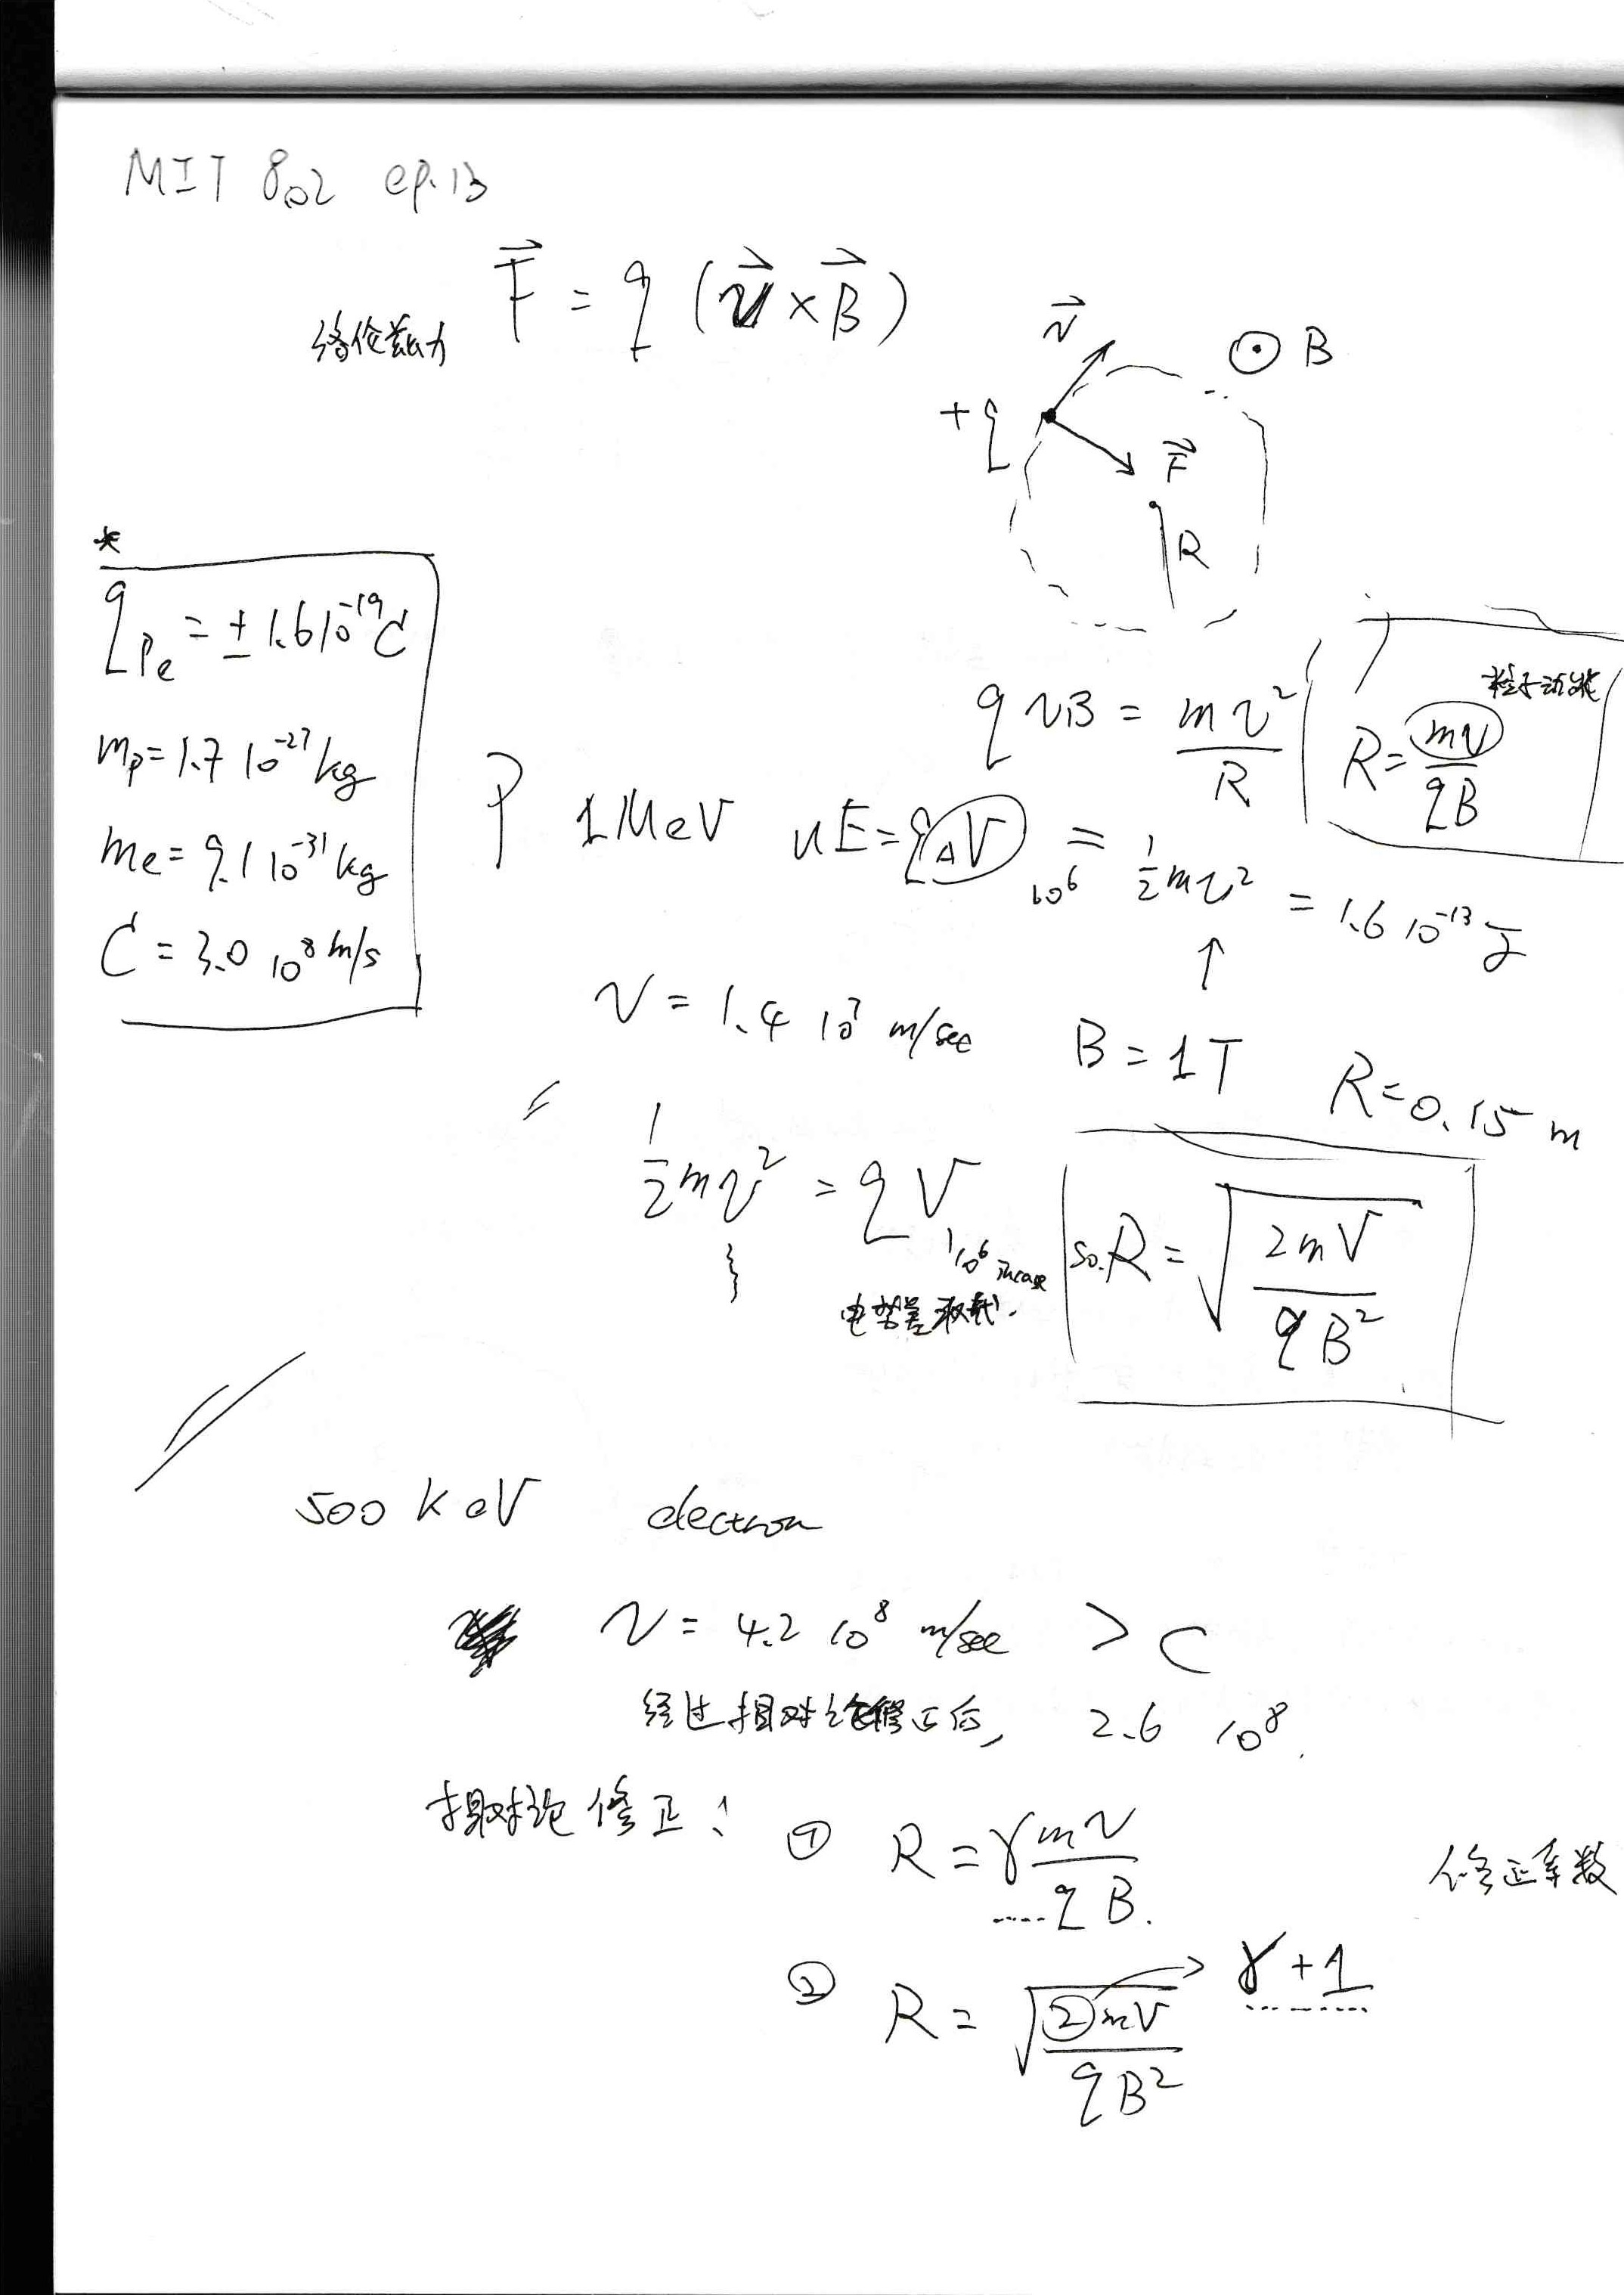 MIT 8.02 ep.13
洛伦兹力 F = q (v × B)
v
B
+q
F
R
*
q P e = ± 1.6 10^-19 C
mp = 1.7 10^-27 kg
me = 9.1 10^-31 kg
C = 3.0 10^8 m/s
q v B = mv^2 / R
粒子动能
R = mv / qB
P 1 MeV uE = qΔV = 1/2 mv^2 = 1.6 10^-13 J
10^6
↑
v = 1.4 10^7 m/sec B = 1T R = 0.15 m
1/2 mv^2 = q V
10^6 incase
电势差
so. R = √(2mV / qB^2)
500 KeV electron
v = 4.2 10^8 m/sec > C
经过相对论修正后, 2.6 10^8.
相对论修正:
① R = γ mv / qB.
修正系数
② R = √(2mV / qB^2) → γ + 1